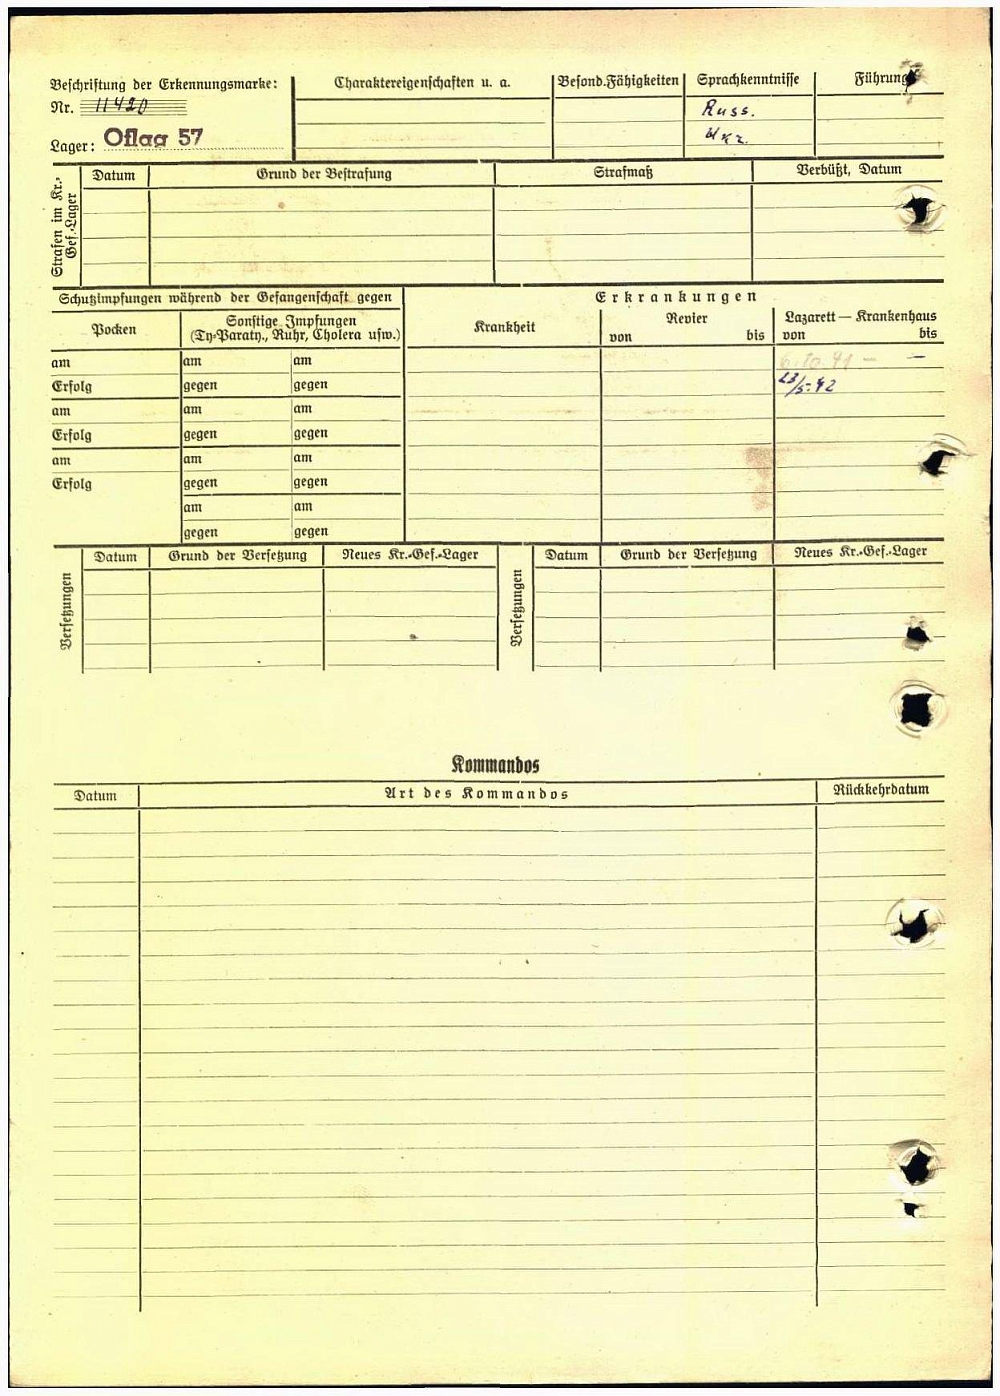 Beschriftung der Erkennungsmarke:
Nr. 11420
Lager: Oflag 57
Charaktereigenschaften u. a.
Besond. Fähigkeiten
Sprachkenntnisse
Russ.
Ukr.
Führung
Strafen im Kr.-
Gef.-Lager
Datum
Grund der Bestrafung
Strafmaß
Verbüßt, Datum
Schutzimpfungen während der Gefangenschaft gegen
Erkrankungen
Pocken
Sonstige Impfungen
(Ty-Paraty., Ruhr, Cholera usw.)
Krankheit
Revier
von bis
Lazarett — Krankenhaus
von bis
am am am 6.10.41 — —
Erfolg gegen gegen 23/5.42
am am am
Erfolg gegen gegen
am am am
Erfolg gegen gegen
am am
gegen gegen
Versetzungen
Datum
Grund der Versetzung
Neues Kr.-Gef.-Lager
Versetzungen
Datum
Grund der Versetzung
Neues Kr.-Gef.-Lager
Kommandos
Datum
Art des Kommandos
Rückkehrdatum